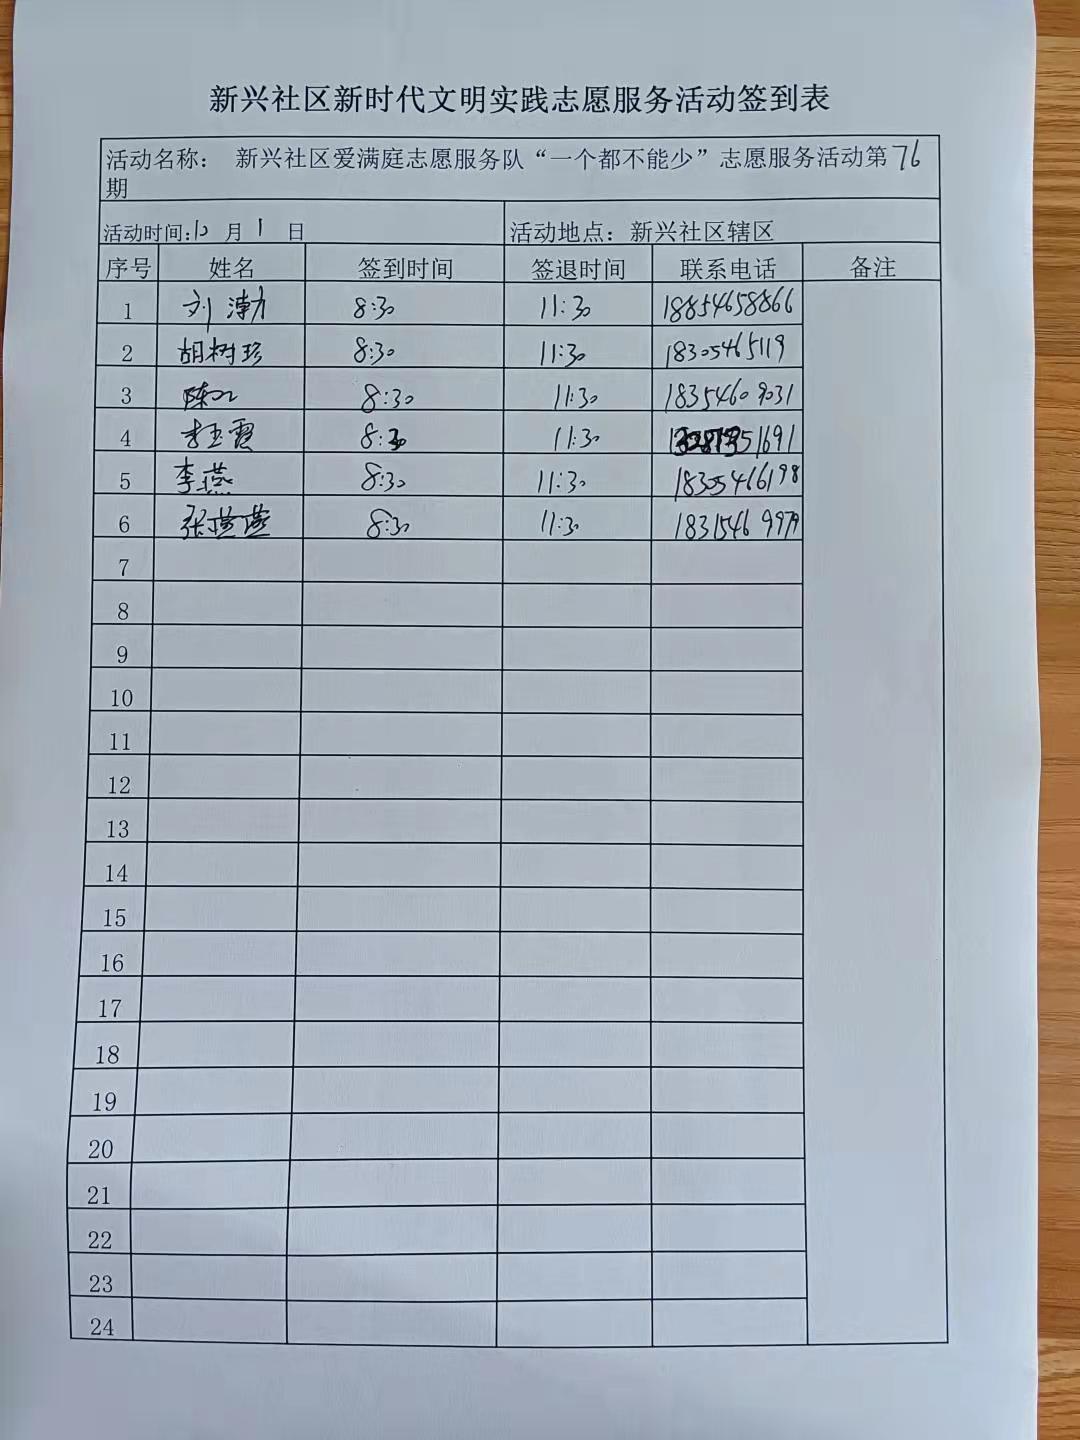 新兴社区新时代文明实践志愿服务活动签到表
活动名称： 新兴社区爱满庭志愿服务队“一个都不能少”志愿服务活动第76
期
活动时间:10月1日 活动地点：新兴社区辖区
序号 姓名 签到时间 签退时间 联系电话 备注
1 刘渤 8:30 11:30 18854658866
2 胡树珍 8:30 11:30 18305465119
3 陈 8:30 11:30 18354609031
4 李玉霞 8:30 11:30 51691
5 李燕 8:30 11:30 18305466198
6 张燕 8:30 11:30 18315469979
7
8
9
10
11
12
13
14
15
16
17
18
19
20
21
22
23
24